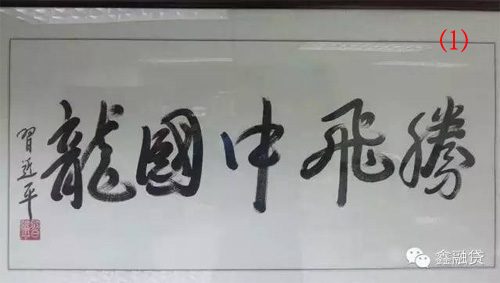 (1)
騰飛中國龍
習近平
鑫融贷